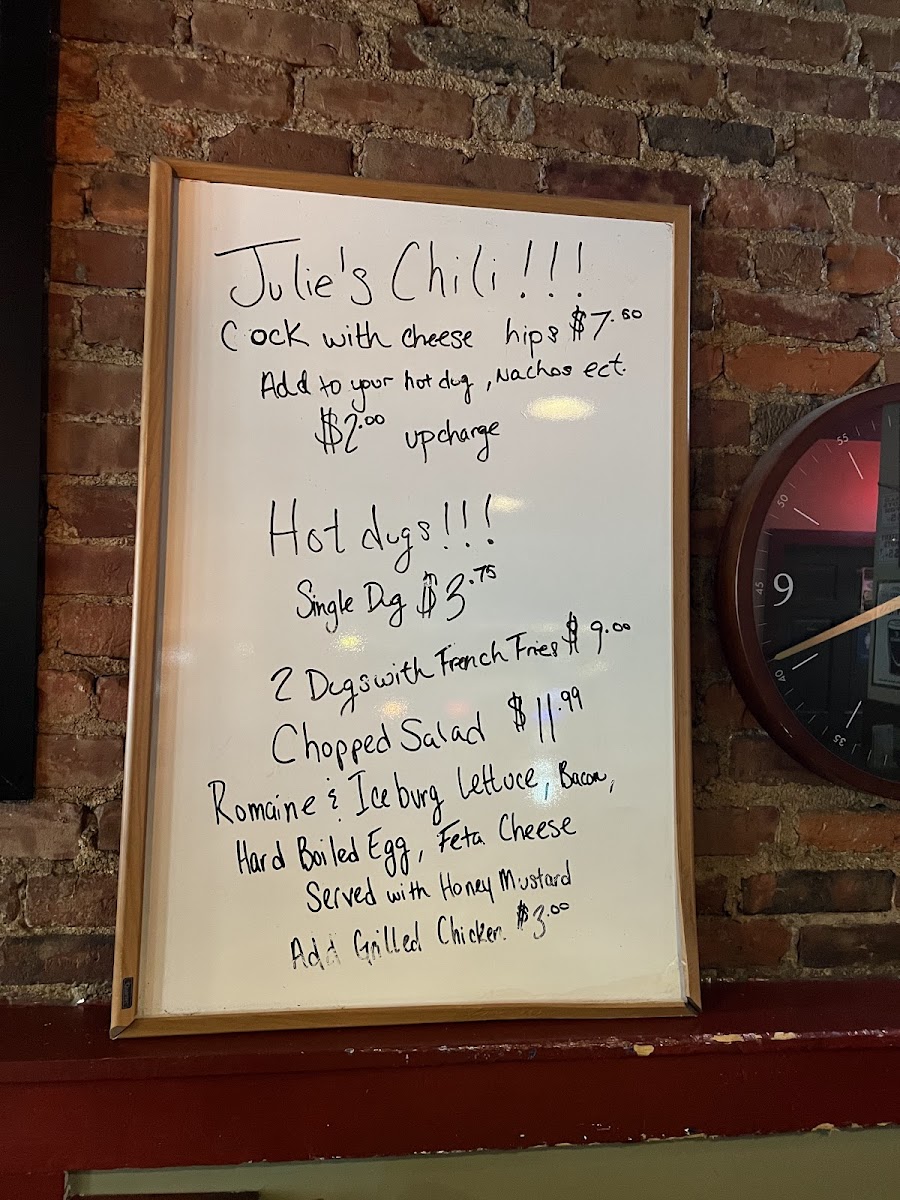 Julie's Chili!!!
Cock with cheese hips $7.50
Add to your hot dug, Nachos ect.
$2.00 upcharge
Hot dugs!!!
Single Dug $3.75
2 Dugs with French Fries $9.00
Chopped Salad $11.99
Romaine & Iceburg Lettuce, Bacon,
Hard Boiled Egg, Feta Cheese
Served with Honey Mustard
Add Grilled Chicken. $3.00
55
50
45
9
40
35